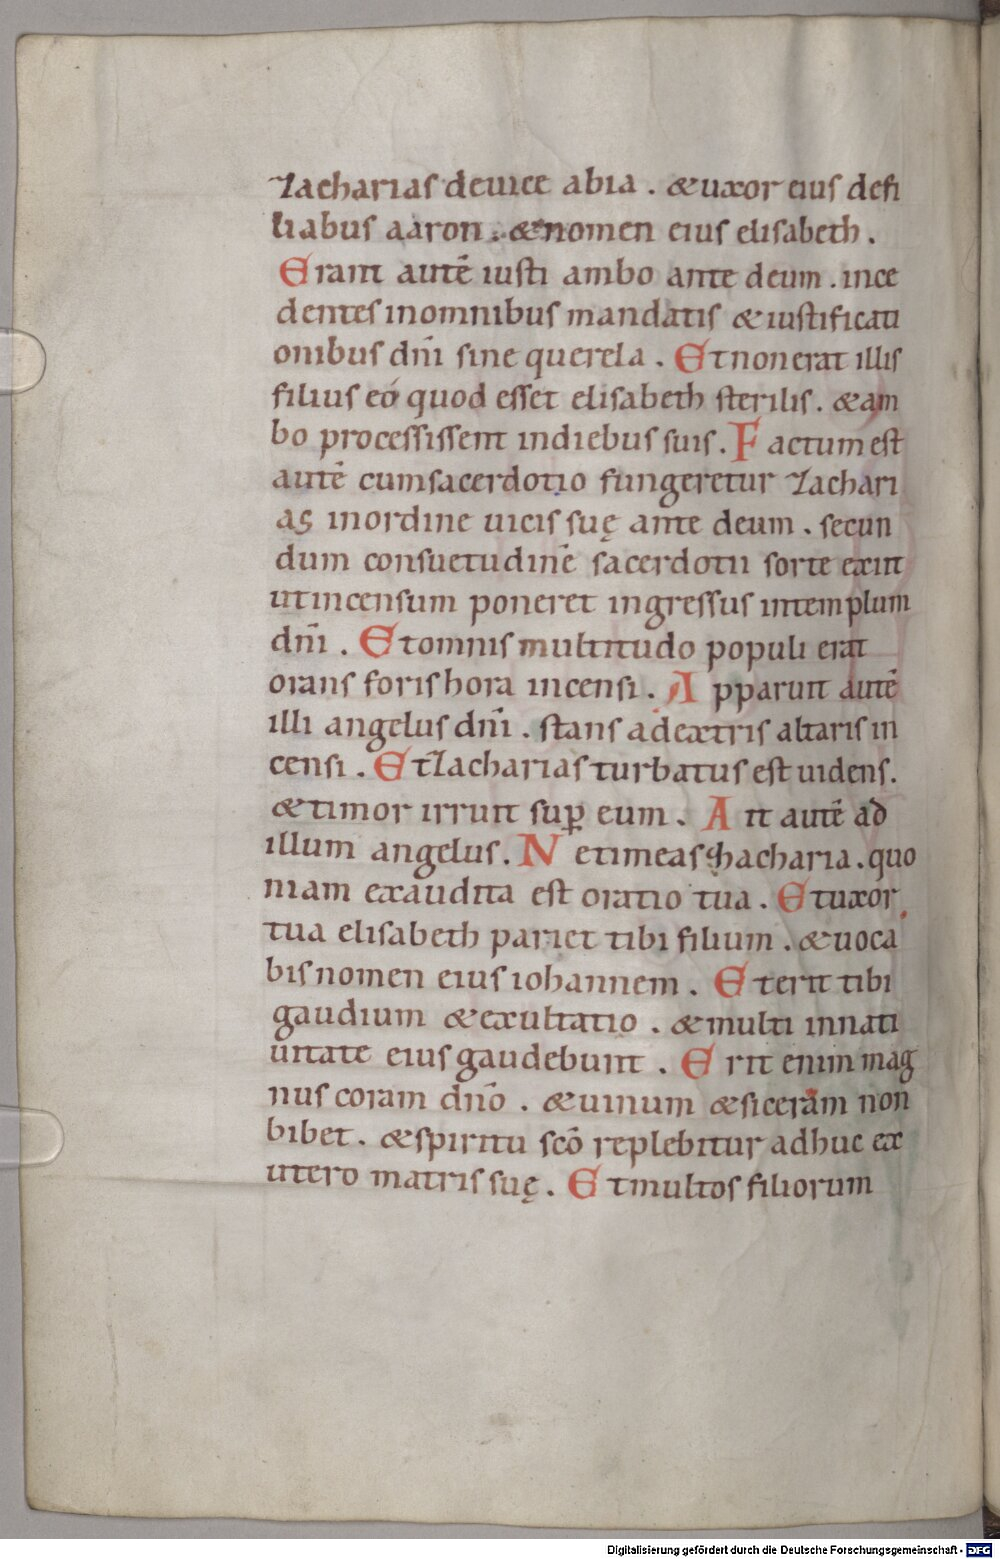 Zacharias deuice abia . &uxor eius defi
liabus aaron . &nomen eius elisabeth .
Erant autē iusti ambo ante deum . ince
dentes inomnibus mandatis &iustificati
onibus dn̄i sine querela . Etnonerat illis
filius eó quod esset elisabeth sterilis . &am
bo processissent indiebus suis . Factumest
autē cumsacerdotio fungeretur Zachari
as inordine uicis suę ante deum . secun
dum consuetudinē sacerdotii sorte exiit
utincensum poneret ingressus intemplum
dn̄i . Etomnis multitudo populi erat
orans foris hora incensi . Apparuit autē
illi angelus dn̄i . stans adextris altaris in
censi . EtZacharias turbatus est uidens .
&timor irruit sup̲ eum . Ait autē ad
illum angelus . Netimeas zhacharia . quo
niam exaudita est oratio tua . Etuxor
tua elisabeth pariet tibi filium . &uoca
bisnomen eius iohannem . Eterit tibi
gaudium &exultatio . &multi innati
uitate eius gaudebunt . Erit enim mag
nus coram dn̄o . &uinum &siceram non
bibet . &spiritu scō replebitur adhuc ex
utero matris suę . Etmultos filiorum
Digitalisierung gefördert durch die Deutsche Forschungsgemeinschaft - DFG